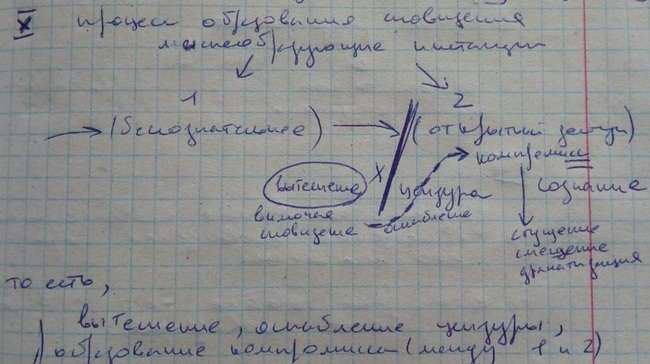 X процесс образования сновидения
мыслеобразующие инстанции
1 2
(бессознательное) (открытый доступ)
компромисс
вытеснение х цензура сознание
включая
сновидение ослабление
сгущение
смещение
драматизация
то есть,
вытеснение, ослабление цензуры,
образование компромисса (между 1 и 2)